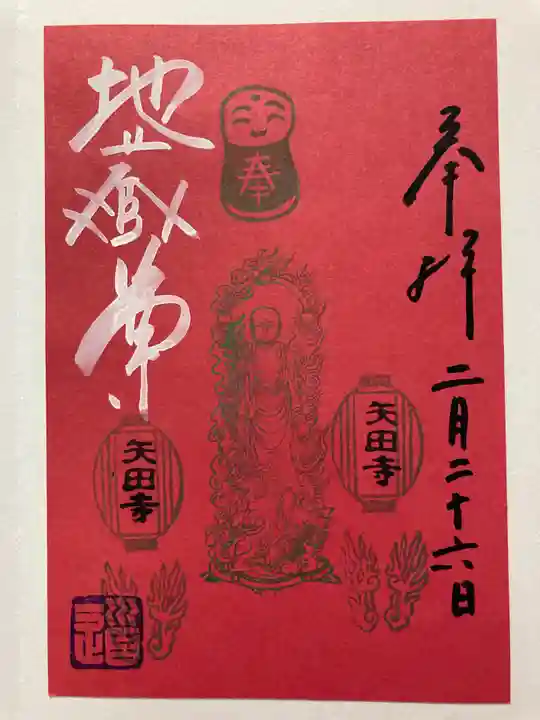 奉拝
二月二十六日
奉
矢田寺
地蔵尊
矢田寺